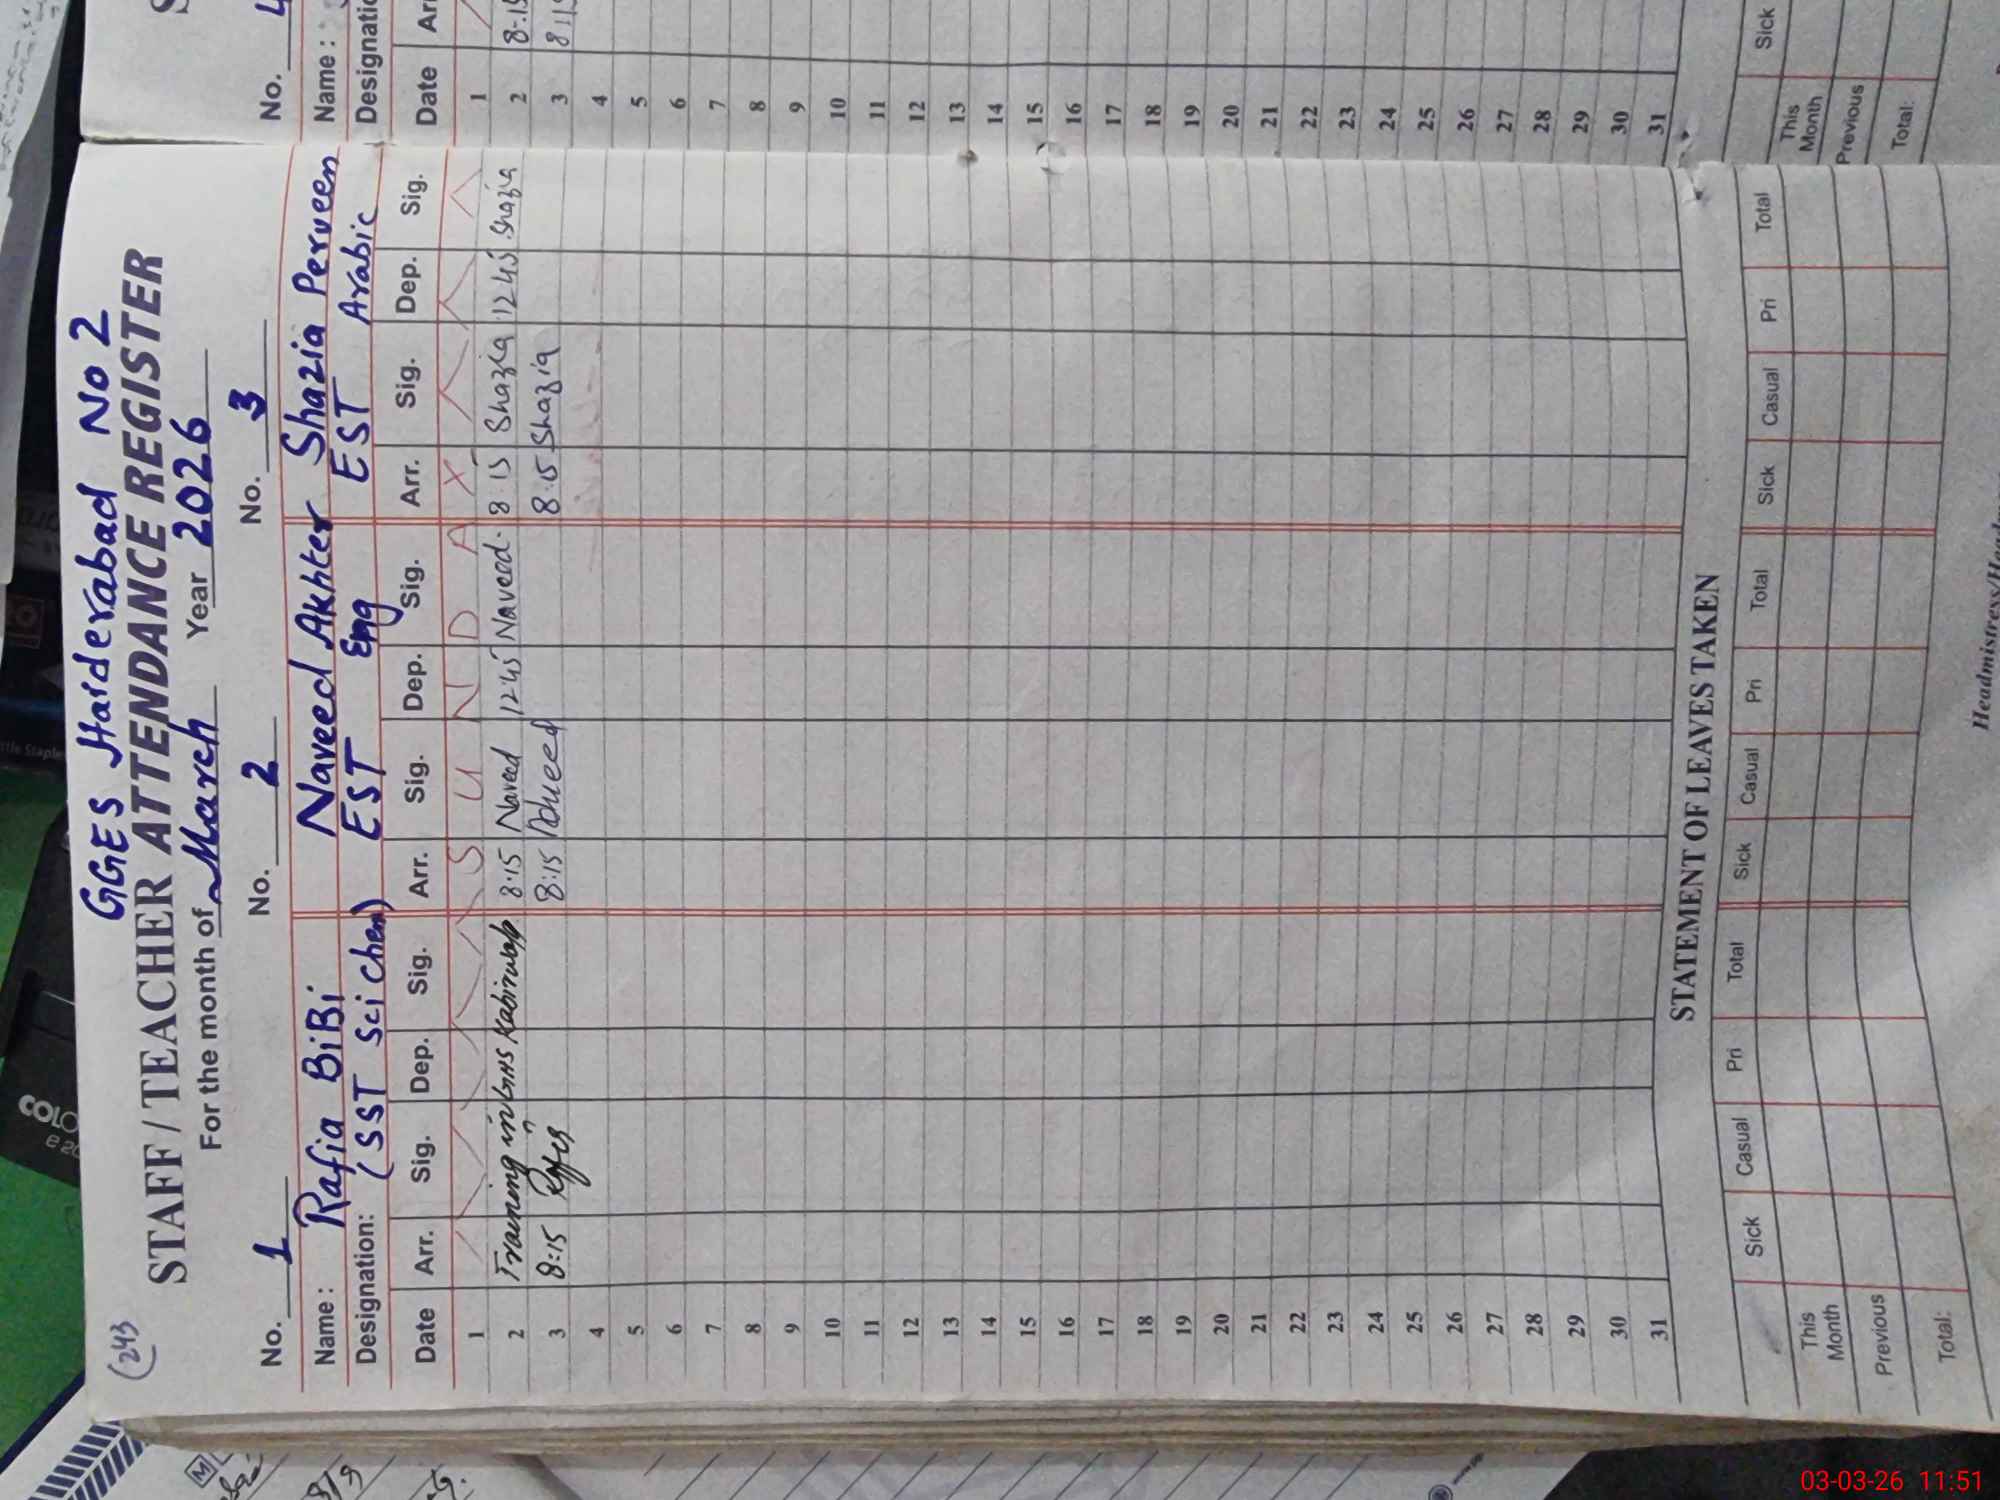 243
GGES Haiderabad No 2
STAFF / TEACHER ATTENDANCE REGISTER
For the month of March Year 2026
No. 1 No. 2 No. 3
Name: Rafia BiBi Naveed Akhter Shazia Perveen
Designation: (SST Sci Chem) EST Eng EST Arabic
Date Arr. Sig. Dep. Sig. Arr. Sig. Dep. Sig. Arr. Sig. Dep. Sig.
1 S U N D A Y
2 Training in GHS 8:15 Naveed 12:45 Naveed. 8:15 Shazia 12:45 Shazia
3 8:15 8:15 Naveed 8:15 Shazia
4
5
6
7
8
9
10
11
12
13
14
15
16
17
18
19
20
21
22
23
24
25
26
27
28
29
30
31
STATEMENT OF LEAVES TAKEN
Sick Casual Pri Total Sick Casual Pri Total Sick Casual Pri Total
This Month
Previous
Total:
No. 4
Name:
Date
1
2 8:15
3 8:15
4
5
6
7
8
9
10
11
12
13
14
15
16
17
18
19
20
21
22
23
24
25
26
27
28
29
30
31
Sick
This Month
Previous
Total:
COLO
03-03-26 11:51